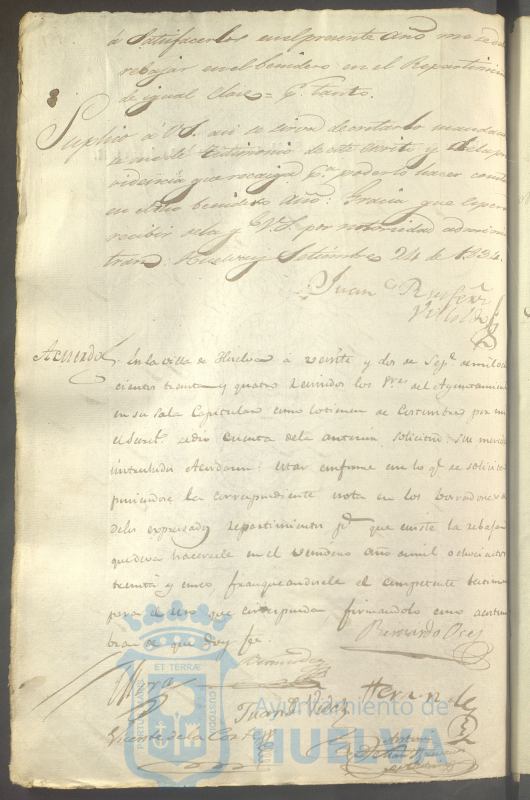 á Satisfacerlos en el presente Año me se de
rebajar en el benidero en el Repartimien
de igual Clase = Pr. tanto.
Suplico á V.S. asi se sirva decretarlo mandan
se me dé testimonio de este escrito y de la pro
videncia que recaiga pa. poderlo hacer const
en el año benidero: Gracia que espera
recibir de la y V.S. por notoriedad adminis
tran. Huelva y Setiembre 24 de 1834.
Juan
Acuerdo
En la villa de Huelva á veinte y dos de Sepe. de mil ocho
cientos treinta y quatro reunidos los Sres. del Ayuntamiento
en su Sala Capitular como lo tienen de Costumbre por mi
el Secret. se dio cuenta de la anterior solicitud
Acordaron: estar conforme en lo qe. se solicita
poniendose la correspondiente nota en los borradores
delos expresados repartimientos pa. que conste la rebaja
que deva hacersele en el venidero año de mil ochocientos
treinta y cinco, franqueandosele el competente testim
para el uso que corresponda, firmandolo como acostum
bran de que doy fe.
Bernardo
Bermudez
Mora
Juan Vides
Hernandez
Vicente de la Corte
ET TERRÆ
PORTUS MARIS
CUSTODIA
Ayuntamiento de
HUELVA